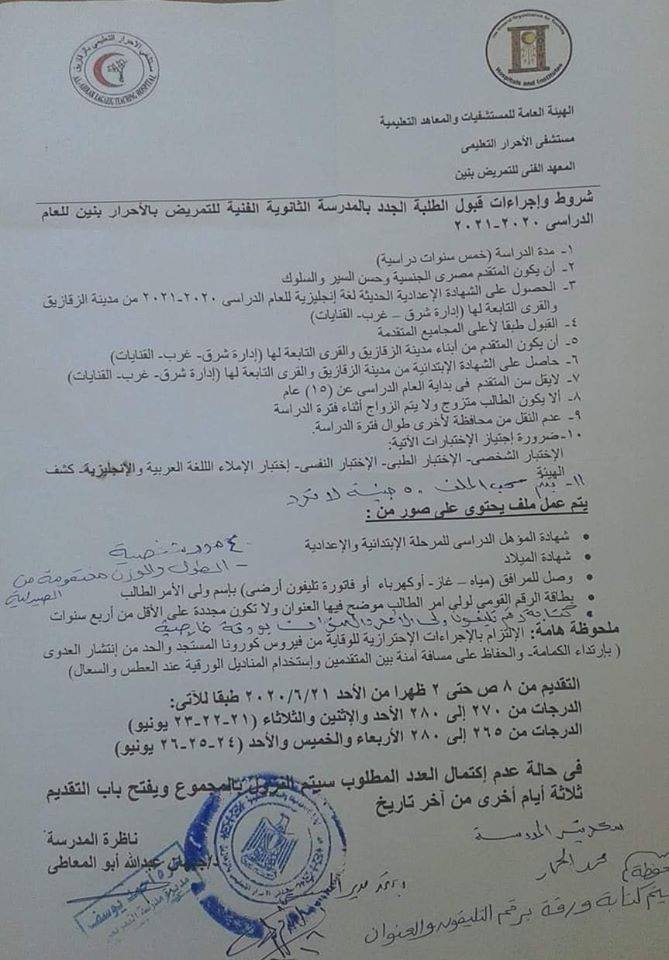 مستشفى الأحرار التعليمى بالزقازيق
AL-AHRAR ZAGAZIG TEACHING HOSPITAL
The General Organization for Teaching
Hospitals and Institutes
الهيئة العامة للمستشفيات والمعاهد التعليمية
مستشفى الأحرار التعليمى
المعهد الفنى للتمريض بنين
شروط وإجراءات قبول الطلبة الجدد بالمدرسة الثانوية الفنية للتمريض بالأحرار بنين للعام
الدراسى ٢٠٢٠-٢٠٢١
١- مدة الدراسة (خمس سنوات دراسية)
٢- أن يكون المتقدم مصرى الجنسية وحسن السير والسلوك
٣- الحصول على الشهادة الإعدادية الحديثة لغة إنجليزية للعام الدراسى ٢٠٢٠-٢٠٢١ من مدينة الزقازيق
والقرى التابعة لها (إدارة شرق – غرب- القنايات)
٤- القبول طبقا لأعلى المجاميع المتقدمة
٥- أن يكون المتقدم من أبناء مدينة الزقازيق والقرى التابعة لها (إدارة شرق- غرب- القنايات)
٦- حاصل على الشهادة الإبتدائية من مدينة الزقازيق والقرى التابعة لها (إدارة شرق- غرب- القنايات)
٧- لايقل سن المتقدم فى بداية العام الدراسى عن (١٥) عام
٨- ألا يكون الطالب متزوج ولا يتم الزواج أثناء فترة الدراسة
٩- عدم النقل من محافظة لأخرى طوال فترة الدراسة.
١٠- ضرورة إجتياز الإختبارات الآتية:
الإختبار الشخصى- الإختبار الطبى- الإختبار النفسى- إختبار الإملاء اللغة العربية والإنجليزية- كشف
الهيئة
١١- يتم سحب الملف ٥٠ جنية لا ترد
يتم عمل ملف يحتوى على صور من :
شهادة المؤهل الدراسى للمرحلة الإبتدائية والإعدادية
٤ صور شخصية
شهادة الميلاد
- الطول والوزن مختومة من
الصيدلية
وصل للمرافق (مياه – غاز- أوكهرباء أو فاتورة تليفون أرضى) بإسم ولى الأمر الطالب
بطاقة الرقم القومى لولي امر الطالب موضح فيها العنوان ولا تكون مجددة على الأقل من أربع سنوات
كتابة رقم تليفون ولى الأمر والعنوان بورقة خارجية
ملحوظة هامة: الإلتزام بالإجراءات الإحترازية للوقاية من فيروس كورونا المستجد والحد من إنتشار العدوى
( بإرتداء الكمامة- والحفاظ على مسافة آمنة بين المتقدمين وإستخدام المناديل الورقية عند العطس والسعال)
التقديم من ٨ ص حتى ٢ ظهرا من الأحد ٢٠٢٠/٦/٢١ طبقا للآتى:
الدرجات من ٢٧٠ إلى ٢٨٠ الأحد والإثنين والثلاثاء (٢١-٢٢-٢٣ يونيو)
الدرجات من ٢٦٥ إلى ٢٨٠ الأربعاء والخميس والأحد (٢٤-٢٥-٢٦ يونيو)
فى حالة عدم إكتمال العدد المطلوب سيتم النزول بالمجموع ويفتح باب التقديم
ثلاثة أيام أخرى من آخر تاريخ
ناظرة المدرسة
سكرتير المدرسة
عبدالله أبو المعاطى
محمد الحمار
يعتمد مدير
أحمد يوسف
ملحوظة
يتم كتابة ورقة برقم التليفون والعنوان